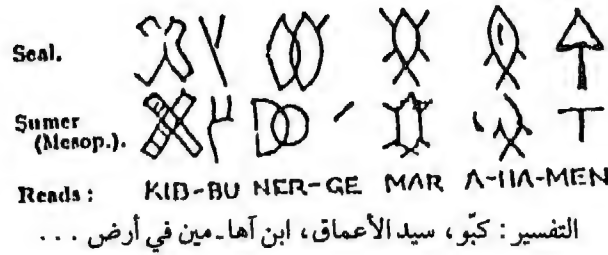 Seal.
Sumer
(Mesop.).
Reads: KIB-BU NER-GE MAR A-HA-MEN
التفسير: كبّو، سيد الأعماق، ابن آها-مين في أرض ...